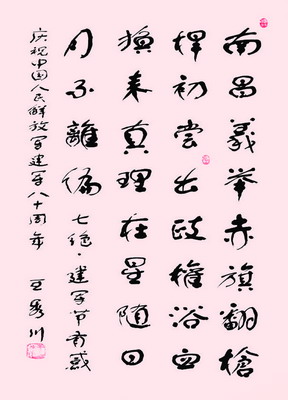 南昌義舉赤旗翻槍
桿初嘗出政權浴血
换来真理在星随日
月不離偏 七绝·建军节有感
庆祝中国人民解放军建军八十周年 川